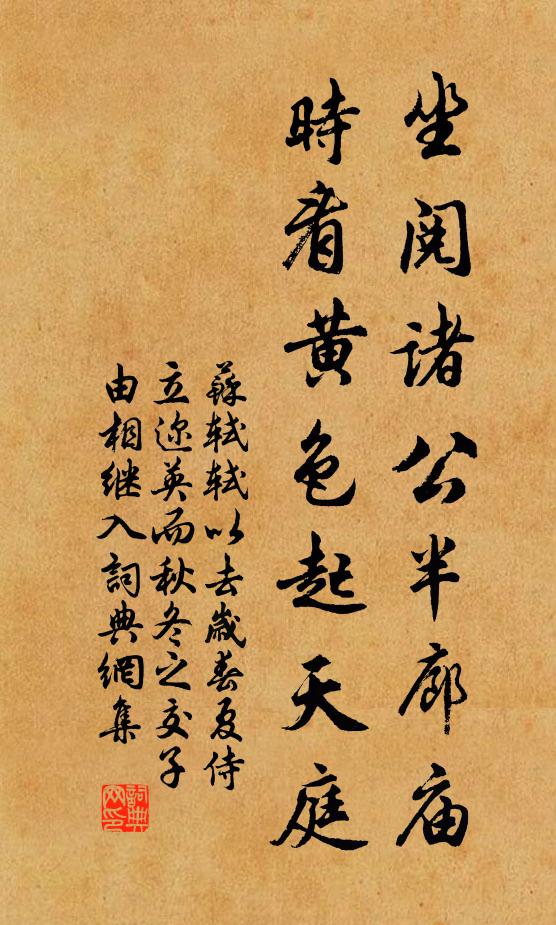 坐閱諸公半廊庙
時看黄色起天庭
蘇軾軾以去歲春夏侍
立迩英而秋冬之交子
由相继入詞典網集
詞典网印